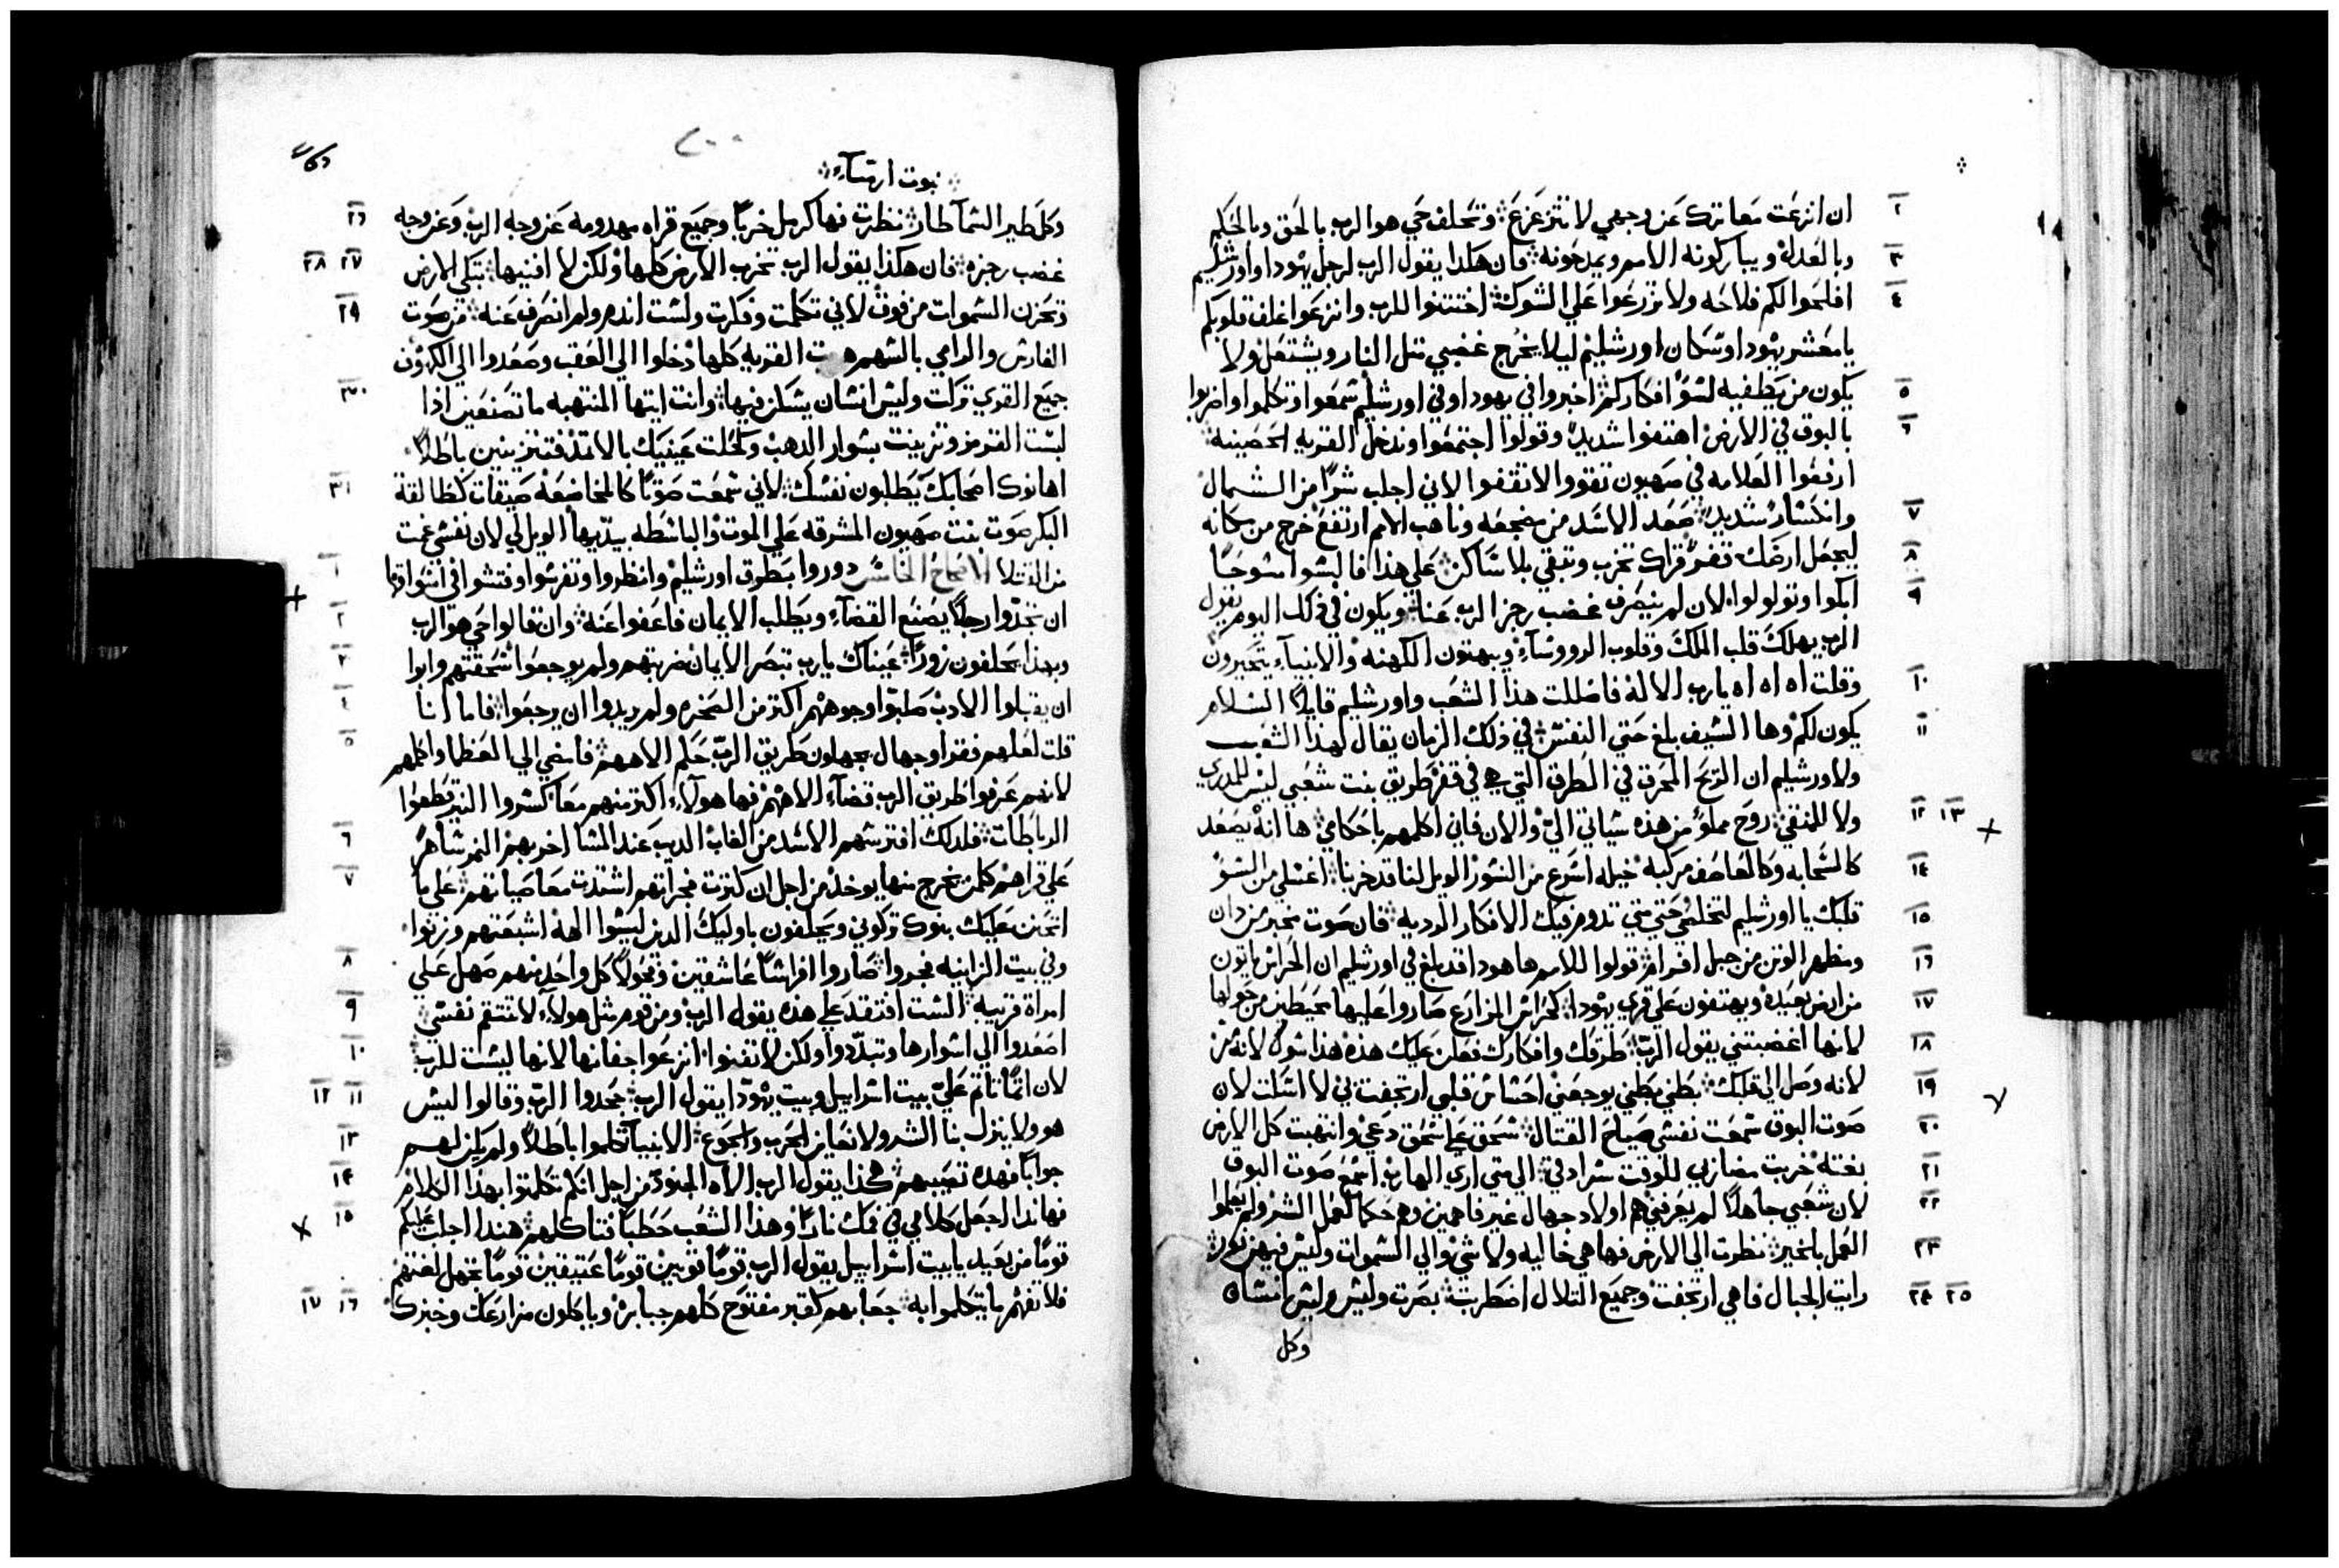 ٢ ان انزعت معاثرك عن وجهي لا تتزعزع ۞ وتحلف حي هو الرب بالحق وبالحكم
٣ وبالعدل ويباركونه الامم ويمدحونه ۞ فان هكذا يقول الرب لرجل يهودا واورشليم
٤ افلحوا لكم فلاحه ولا تزرعوا علي الشوك ۞ اختتنوا للرب وانزعوا غلف قلوبكم
يا معشر يهودا وسكان اورشليم ليلا يخرج غضبي متل النار ويشتعل ولا
٥ يكون من يطفيه لسو افكاركم ۞ اخبروا في يهودا وفي اورشليم سمعوا وتكلموا واضربوا
٦ بالبوق في الارض اهتفوا شديدا وقولوا اجتمعوا وندخل القريه الحصينه
ارفعوا العلامه في صهيون تقووا لا تقفوا لاني اجلب شرا من الشمال
٧ وانكسار شديد ۞ صعد الاسد من مضجعه وناهب الامم ارتفع خرج من مكانه
٨ ليجعل ارضك قفر قراك تخرب وتبقي بلا ساكن ۞ علي هذا فالبسوا مسوحا
٩ ابكوا وتولولوا لان لم ينصرف غضب رجز الرب عنا ۞ ويكون في ذلك اليوم يقول
الرب يهلك قلب الملك وقلوب الرووساء ويبهتون الكهنه والانبياء يتحيرون
١٠ وقلت اه اه اه يارب الاله فاضللت هذا الشعب واورشليم قايلا السلام
١١ يكون لكم وها السيف بلغ حتي النفس ۞ في ذلك الزمان يقال لهذا الشعب
ولاورشليم ان الريح المحرق في الطرق التي هي في قفر طريق بنت شعبي ليس للمدري
١٢ ١٣ ولا للمنقي ۞ روح مملو من هذه سياتي الي والان فاني اكلمهم باحكامي ها انه يصعد
١٤ كالسحابه وكالعاصف مركبه خيله اسرع من النسور الويل لنا قد خربنا ۞ اغسلي من السو
١٥ قلبك يا اورشليم لتخلصي حتي متي تدوم فيك الافكار الرديه ۞ فان صوت مخبر من دان
١٦ ومظهر الوتن من جبل افرام ۞ قولوا للامم ها هوذا قد بلغ في اورشليم ان الحراس ياتون
١٧ من ارض بعيده ويهتفون علي قري يهودا ۞ كحراس المزارع صاروا عليها محيطين من حولها
١٨ لانها اغضبتني يقول الرب ۞ طرقك وافكارك فعلن عليك هذه هذا سوك لانه مر
١٩ لانه وصل الي قلبك ۞ بطني بطني يوجعني احشاش قلبي ارتجفت بي لا اسكت لان
٢٠ صوت البوق سمعت نفسي صياح القتال ۞ سحق علي سحق دعي وانتهبت كل الارض
٢١ بغته خربت مضاربي للوقت سرادقي ۞ الي متي اري الهارب اسمع صوت البوق
٢٢ لان شعبي جاهلا لم يعرفني هم اولاد جهال غير فاهمين وهم حكما لعمل الشر ولم يعلموا
٢٣ العمل بالخير ۞ نظرت الي الارض فها هي خاليه ولا شي والي السموات وليس فيهن نور
٢٤ ٢٥ رايت الجبال فاهي ارتجفت وجميع التلال اضطربت ۞ بصرت وليس وليس انسان
وكل
٢٠٠
نبوت ارمياء
٢٦ وكل طير السما طار ۞ نظرت فها كرمل خربا وجميع قراه مهدومه عن وجه الرب وعن وجه
٢٧ ٢٨ غضب رجزه ۞ فان هكذا يقول الرب تخرب الارض كلها ولكن لا افنيها ۞ تبكي الارض
٢٩ وتحزن السموات من فوق لاني تكلمت وفكرت ولست اندم ولم انصرف عنه ۞ من صوت
الفارس والرامي بالسهم القريه كلها دخلوا الي العقب وصعدوا الي الكهوف
٣٠ جميع القري تركت وليس انسان يسكن فيها ۞ وانت ايتها المنتهبه ما تصنعين اذا
لبست القرمز وتزينت بسوار الدهب وكحلت عينيك بالاتمد فتتزينين باطلا
٣١ اهانوك اصحابك يطلبون نفسك ۞ لاني سمعت صوتا كالمخاضعه ضيقات كظالقة
البكر صوت بنت صهيون المشرقه علي الموت والباسطه يديها الويل لي لان نفسي غمت
١ من القتلا الاصحاح الخامس دوروا بطرق اورشليم وانظروا وتفرسوا وفتشوا في اسواقها
٢ ان تجدوا رجلا يصنع القضاء ويطلب الايمان فاعفوا عنه ۞ وان قالوا حي هو الرب
٣ وبهذا يحلفون زورا ۞ عيناك يارب تبصر الايمان ضربتهم ولم يوجعوا سحقتهم وابوا
٤ ان يقبلوا الادب صلبوا وجوههم اكتر من الصخره ولم يريدوا ان يرجعوا ۞ فاما انا
٥ قلت لعلهم فقرا وجهال يجهلون طريق الرب حكم الاههم ۞ فامضي الي العظما واكلمهم
لانهم عرفوا طريق الرب قضاء الاههم فها هولاء اكتر منهم معا كسروا النير قطعوا
٦ الرباطات ۞ فلدلك افترسهم الاسد من الغاب الديب عند المسا اخربهم النمر ساهر
٧ علي قراهم كلمن يخرج منها يوخذ من اجل ان كترت فجراتهم اشتدت معاصياتهم ۞ علي ما
اتحنن عليك بنوك تركوني ويحلفون باوليك الدين ليسوا الهه اشبعتهم وزنوا
٨ وفي بيت الزانيه فجروا ۞ صاروا افراسا عاشقين وفحولا كل واحد منهم صهل علي
٩ امراة قريبه ۞ الست افتقد علي هذه يقول الرب ومن قوم مثل هولاء لا تنتقم نفسي
١٠ اصعدوا الي اسوارها وتبددوا ولكن لا تفنوا انزعوا جفانها لانها ليست للرب
١١ ١٢ لان اتما تاتم علي بيت اسراييل وبيت يهودا يقول الرب ۞ جحدوا الرب وقالوا ليس
١٣ هو ولا ينزل بنا الشر ولا نعاين الحرب والجوع ۞ الانبيا تكلموا باطلا ولم يكن لهم
١٤ جوابا فهده تصيبهم ۞ هكذا يقول الرب الاه الجنود من اجل انكم تكلمتوا بهذا الكلام
١٥ فهاندا اجعل كلامي في فمك نارا وهذا الشعب حطبا فتاكلهم ۞ هندا اجلب عليكم
قوما من بعيد يا بيت اسراييل يقول الرب قوما قويين قوما عتيقين قوما تجهل لغتهم
١٦ ١٧ فلا تفهم ما يتكلموا به ۞ جعابهم كقبر مفتوح كلهم جبابره وياكلون مزارعك وخبزك